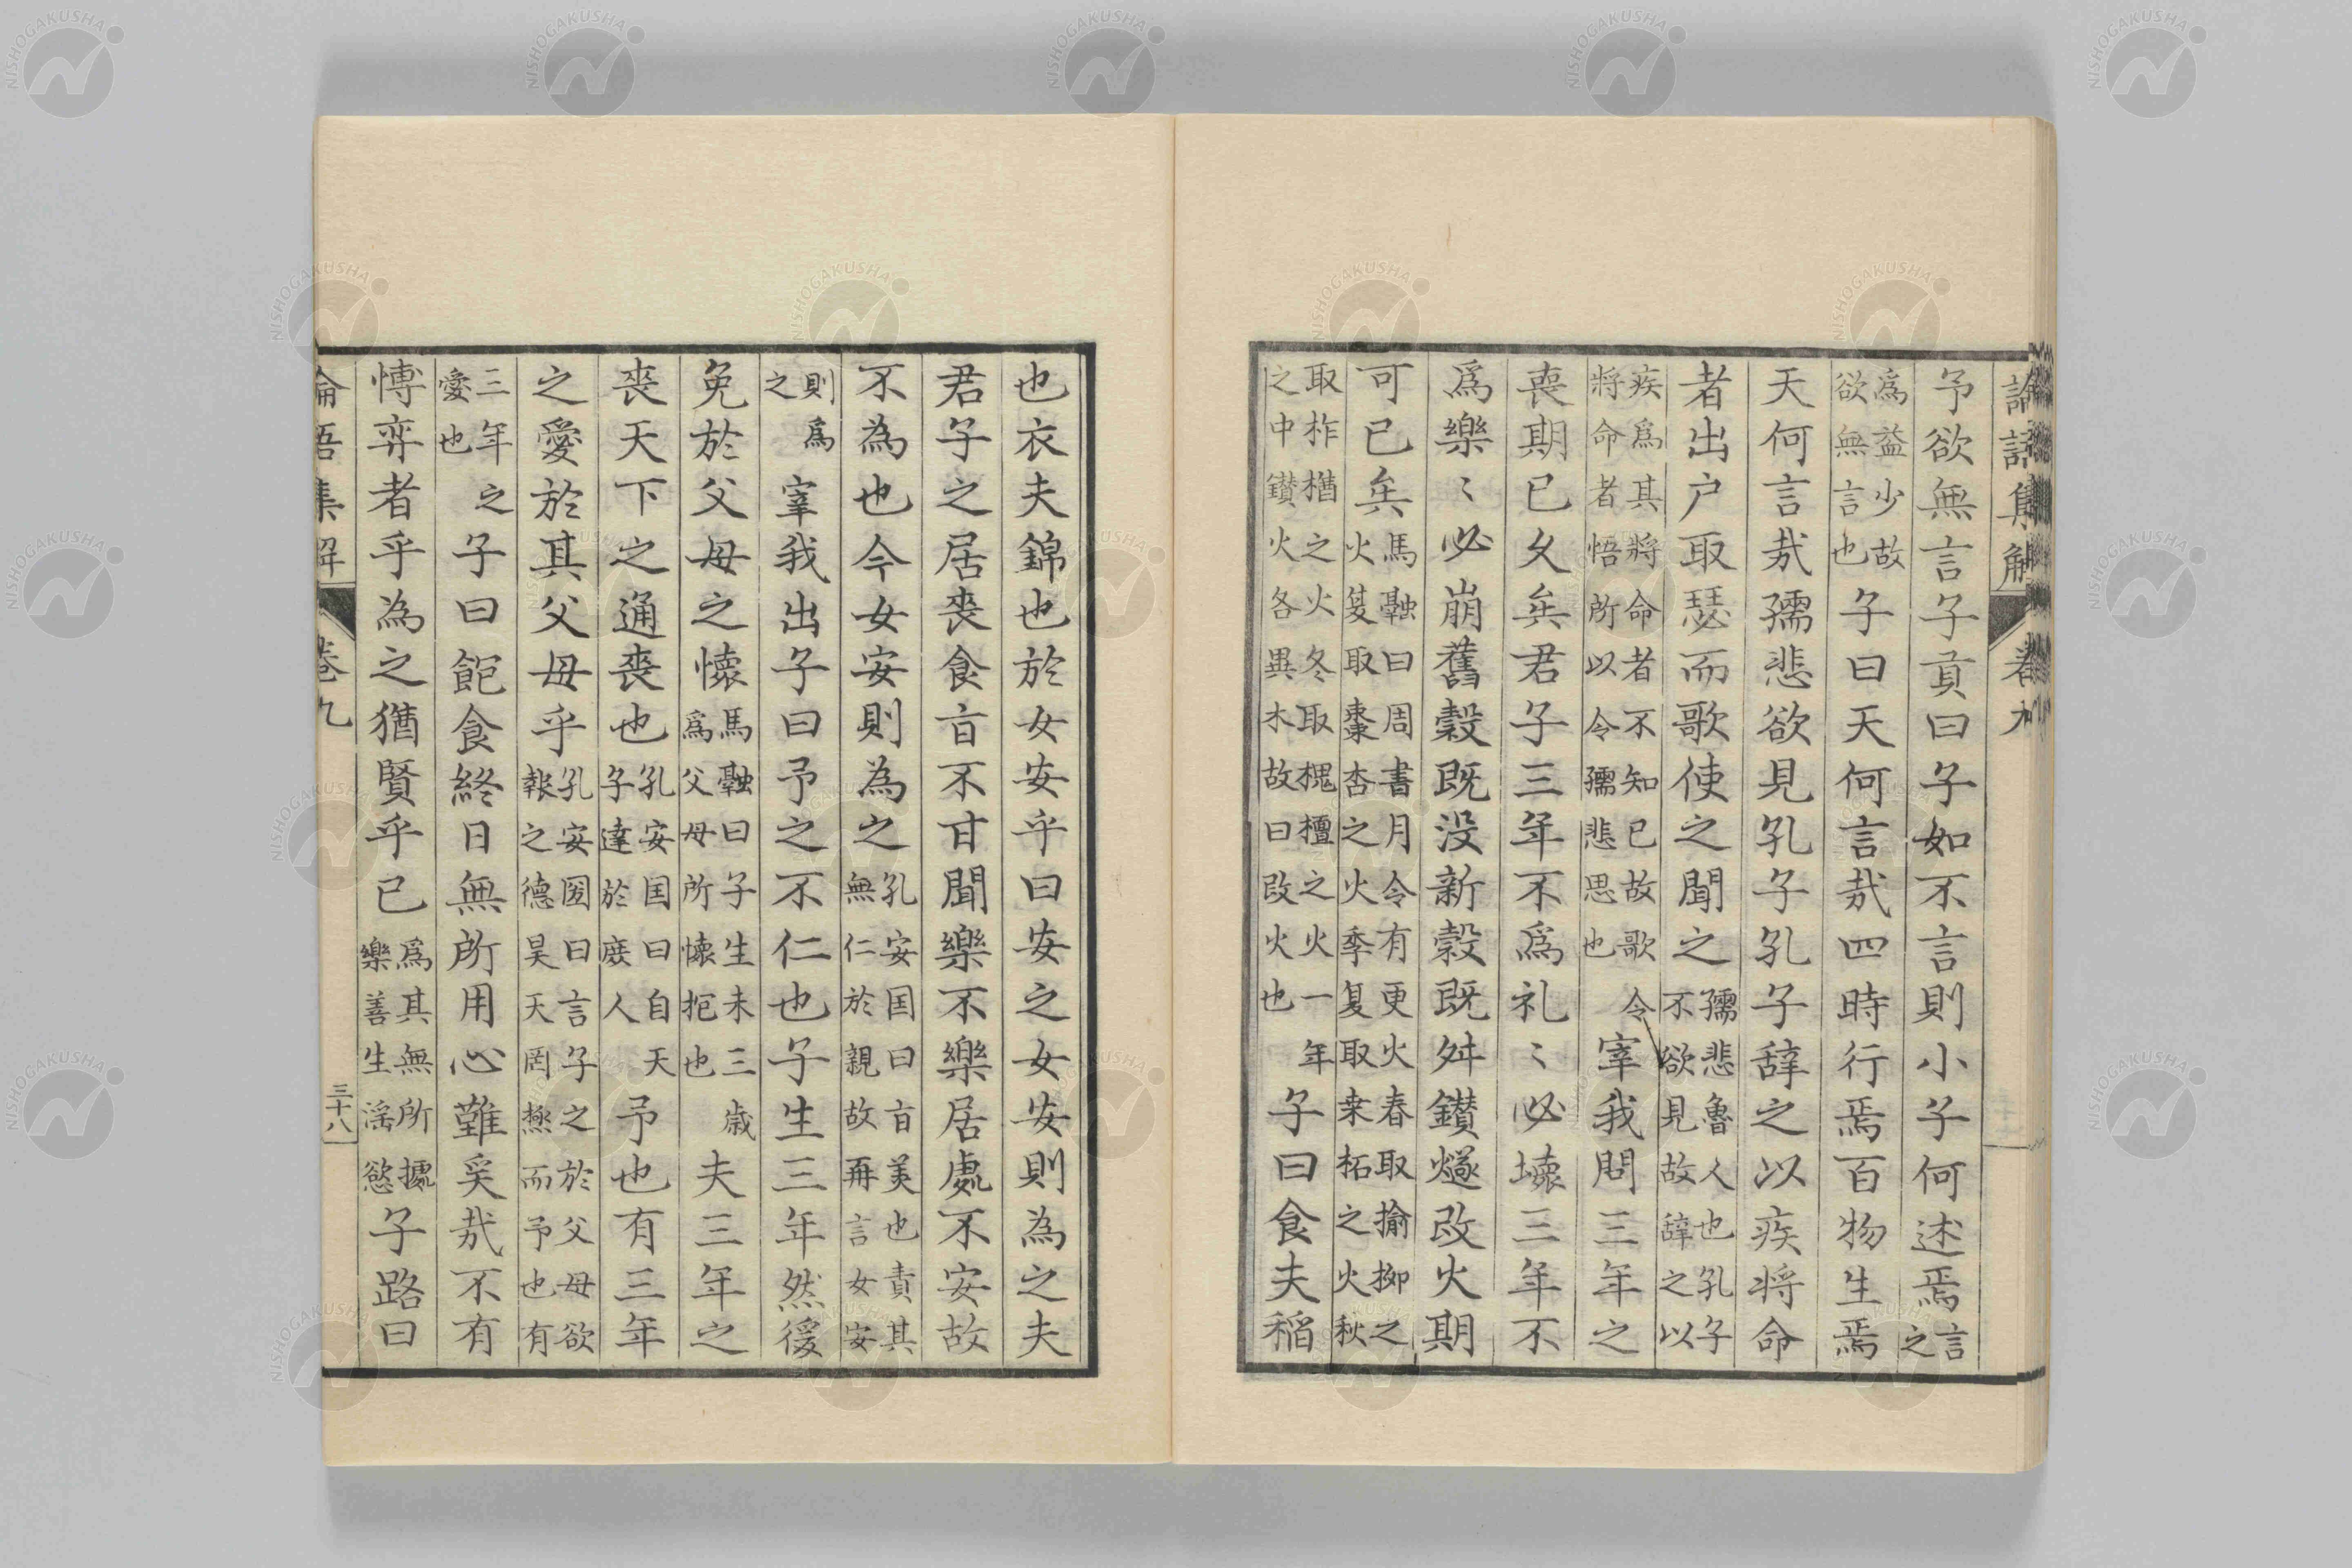 論語集解 卷九
予欲無言子貢曰子如不言則小子何述焉言之
爲益少故欲無言也子曰天何言㢤四時行焉百物生焉
天何言㢤孺悲欲見孔子孔子辞之以疾将命
者出户取瑟而歌使之聞之孺悲魯人也孔子不欲見故辞之以
疾爲其將命者不知已故歌令將命者悟所以令孺悲思也宰我問三年之
喪期已久矣君子三年不爲礼〻必壞三年不
爲樂〻必崩舊穀既没新穀既舛鑚燧改火期
可已矣馬融曰周書月令有更火春取揄柳之火夏取棗杏之火季夏取桒柘之火秋
取柞楢之火冬取槐檀之火一年之中鑚火各異木故曰改火也子曰食夫稲
也衣夫錦也於女安乎曰安之女安則為之夫
君子之居喪食㫖不甘聞樂不樂居處不安故
不為也今女安則為之孔安国曰㫖美也責其無仁於親故再言女安
則爲之宰我出子曰予之不仁也子生三年然後
免於父母之懐馬融曰子生未三歳爲父母所懐抱也夫三年之
喪天下之通喪也孔安国曰自天子達於庶人予也有三年
之愛於其父母乎孔安國曰言子之於父母欲報之德昊天罔極而予也有
三年之愛也子曰飽食終日無所用心難矣㢤不有
博弈者乎為之猶賢乎已爲其無所據樂善生淫慾子路曰
論語集解 卷九 三十八
NISHOGAKUSHA